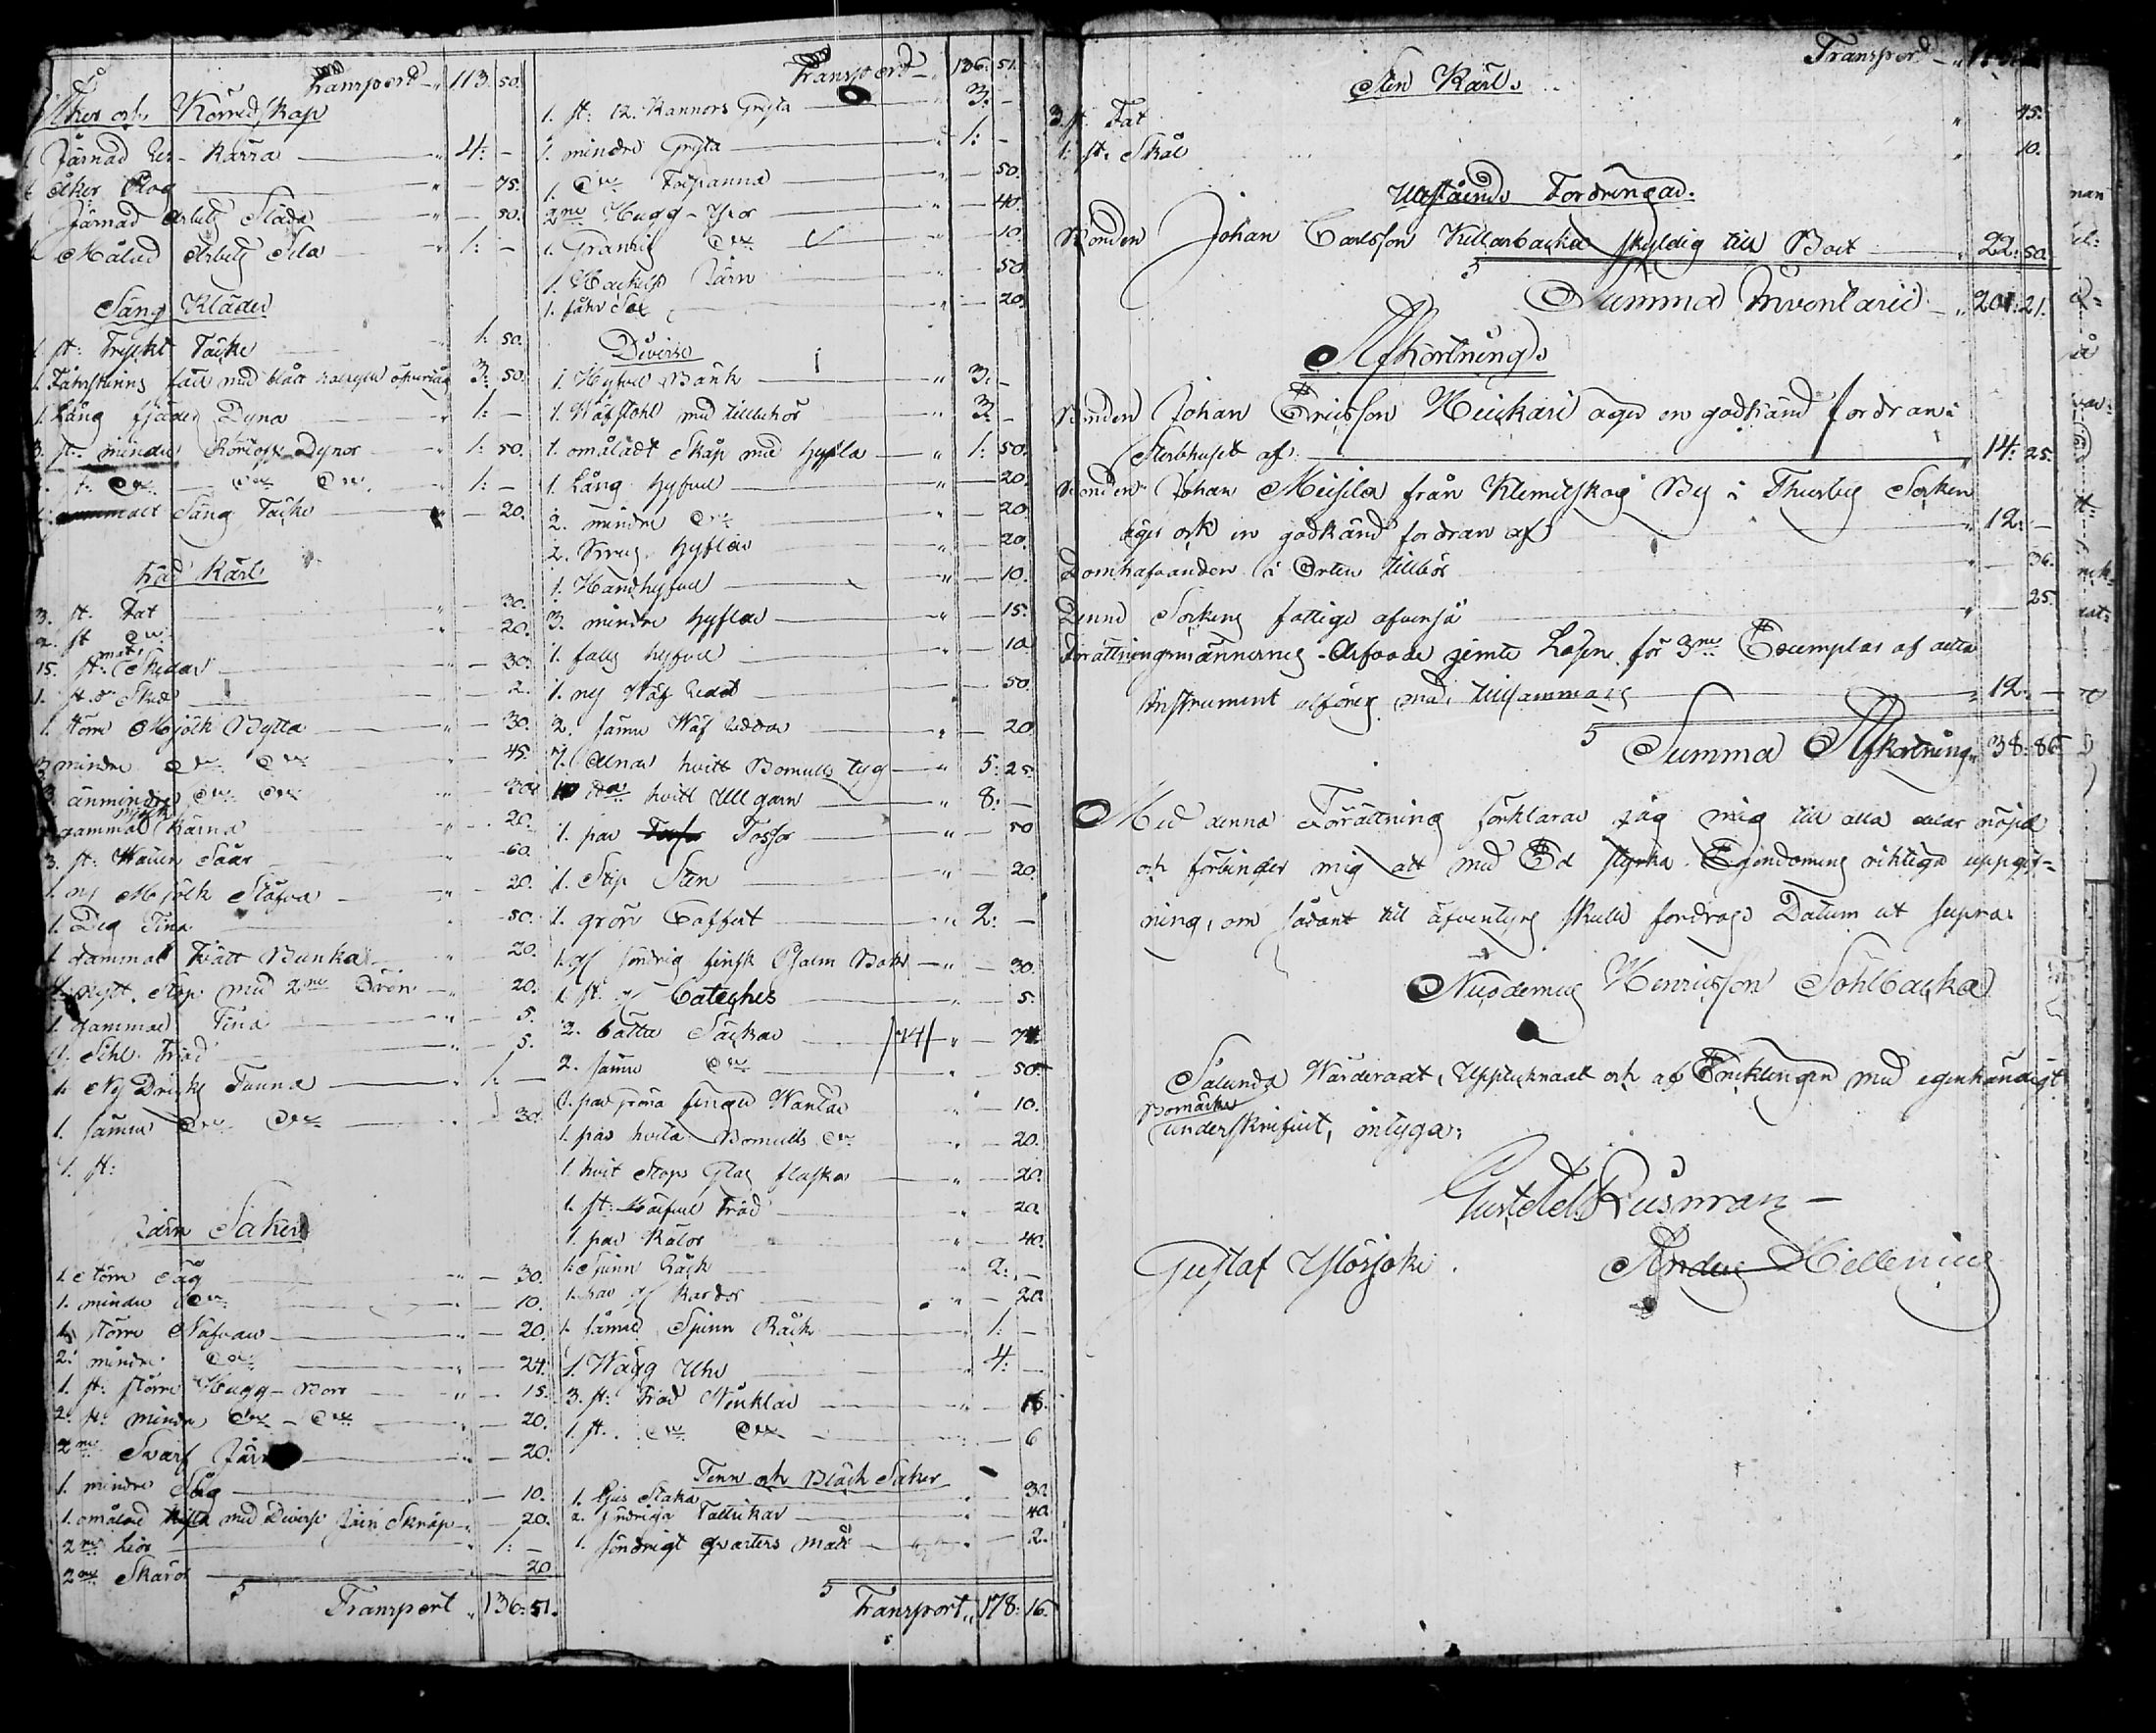 Transport " 113. 50.
Åker och Körredskap
1. Järnad Res-Kärra " 4: -
1. Åker Plog " - 75.
1. Järnad Arbets Släda " - 50.
1. Målad Arbets Sela " 1: -
Säng Kläder
1 st: Tryckt Täcke 1: 50.
1. Fåhrskinns fäll med blått öfverdrag 3: 50.
1. Lång fjäder Dyna " 1: -
3. st. mindre Dynor " 1: 50.
1. st: Do Do Do 1: -
1. Säng Täcke " - 20.
Träd Kärl
3. st. Fat " - 30.
2. st Do " - 20.
15. st: mat Skedar " - 30.
1. st. Do Sked 2.
1. större Mjölk Bytta " - 30.
3 mindre Do Do " - 45.
3. änmindre Do Do " - 30.
1. gammal mjölk Kärna " - 20.
3. st: Watten Såar " - 60.
1. ny Mjölk Stäfva " - 20.
1. Deg Tina - 50.
1. Gammal Twätt Bunka " - 20.
1. nytt Stop med 2ne Öron " - 20.
1. gammal Tina " - 5.
1. Sihl Träd " - 5.
1. Ny Dricks Tunna " 1: -
1. sämre Do Do 30.
1. st:
Järn Saker
1. större Såg " - 30.
1. mindre Do " - 10.
1. större Nafvare " - 20.
2. mindre Do " - 24.
1. st: större Hugg-Borr " - 15.
2. st: mindre Do - Do " - 20.
2ne Swarf Järn " - 20.
1. mindre Såg " - 10.
1. omålad kista med Diverse Järn Skräp " - 20.
2ne Liar " 1: -
2ne Skäror 20
Transport " 136: 51.
Transport " 136: 51.
1. st: 12. Kannors Gryta " 3: -
1. mindre Gryta " 1: -
1. Do Fotpanna " - 50.
2ne Hugg-Yxor " - 40.
1. Do " - 10.
1. Hackelse Järn " - 50.
1. fåhr Sax " - 20.
Diverse
1. Hyfvel Bänk " 3: -
1. Wäfstohl med tillbehör " 3. -
1. omåladt Skåp med hyfla " 1: 50.
1. Lång hyfvel " - 20.
2. mindre Do " - 20.
2. Skrug hyflar " - 20.
1. Handhyfvel " - 10.
3. mindre hyflar " - 15.
1. fals hyfvel " - 10
1. ny Wäf Sked " - 50
2. sämre Wäf Skedar " - 20
7. Alnar hvitt Bomulls tyg " 5: 25
hvitt Ull garn " 8: -
1. par Tossor " - 50
1. Slip Sten 20.
1. grön Coffert " 2: -
1. gl söndrig finsk Psalm Bok " - 30.
1. st. gl Cateches " - 5.
2. bättre Säckar /74/ " - 74
2. sämre Do " - 50.
1. par gröna finger Wantar " - 10.
1. par hvita Bomulls Do " - 20.
1. hvit Stops Glas flaska " - 20.
1. st: Träd " - 20.
1. par Kälor " - 40.
1. Spinn Råck " 2: -
1. par gl Kardor " - 20.
1. sämre Spinn Råck " 1: -
1. Wägg Uhr " 4: -
3. st: Träd " - 15.
1. st. Do Do " - 6
Tenn och Bläck Saker
1. Ljus Staka " - 30.
2. söndriga Tallrikar " - 40.
1. söndrigt qvarters mått " - 2.
Transport " 178: 16.
Transport " 178:
Sten Kärl
3. st. Fat " 45.
1. st. Skål " 10.
Utestående Fordringar.
Bonden Johan Carlsson Källarbacka skyldig till Boet " 22: 50
Summa Inventarii " 201: 21.
Afkortning
Bonden Johan Ericsson Heickari äger en godkänd fordran i
Sterbhuset af " 14: 25.
Bonden Johan Meisila från Klemetskog By i Thusby Socken
äger ock en godkänd fordran af " 12: -
Domhafvanden i Orten tillkör " - 36.
Denne Sockens fattige afvensså " - 25.
Förättningsmännernes Arfvode jemte Lösen för 3ne Exemplar af detta
Instrument utföres med tillsammans " 12. -
Summa Afkortning " 38: 86
Med denna Förättning förklarar jag mig till alla delar nöjd
och förbinder mig att med Ed styrka Egendomens riktiga uppgif-
ning, om sådant till äfventyrs skulle fordras Datum ut supra.
Nicodemus Henricsson Söhlbacka
Sålunda Wärderadt, Upptecknadt och af Encklingen med egenhändigt
Bomärke
underskrifvit, intyga.
Gust Ad Rusman
Gustaf Ylösjoki. Anders Hellenius